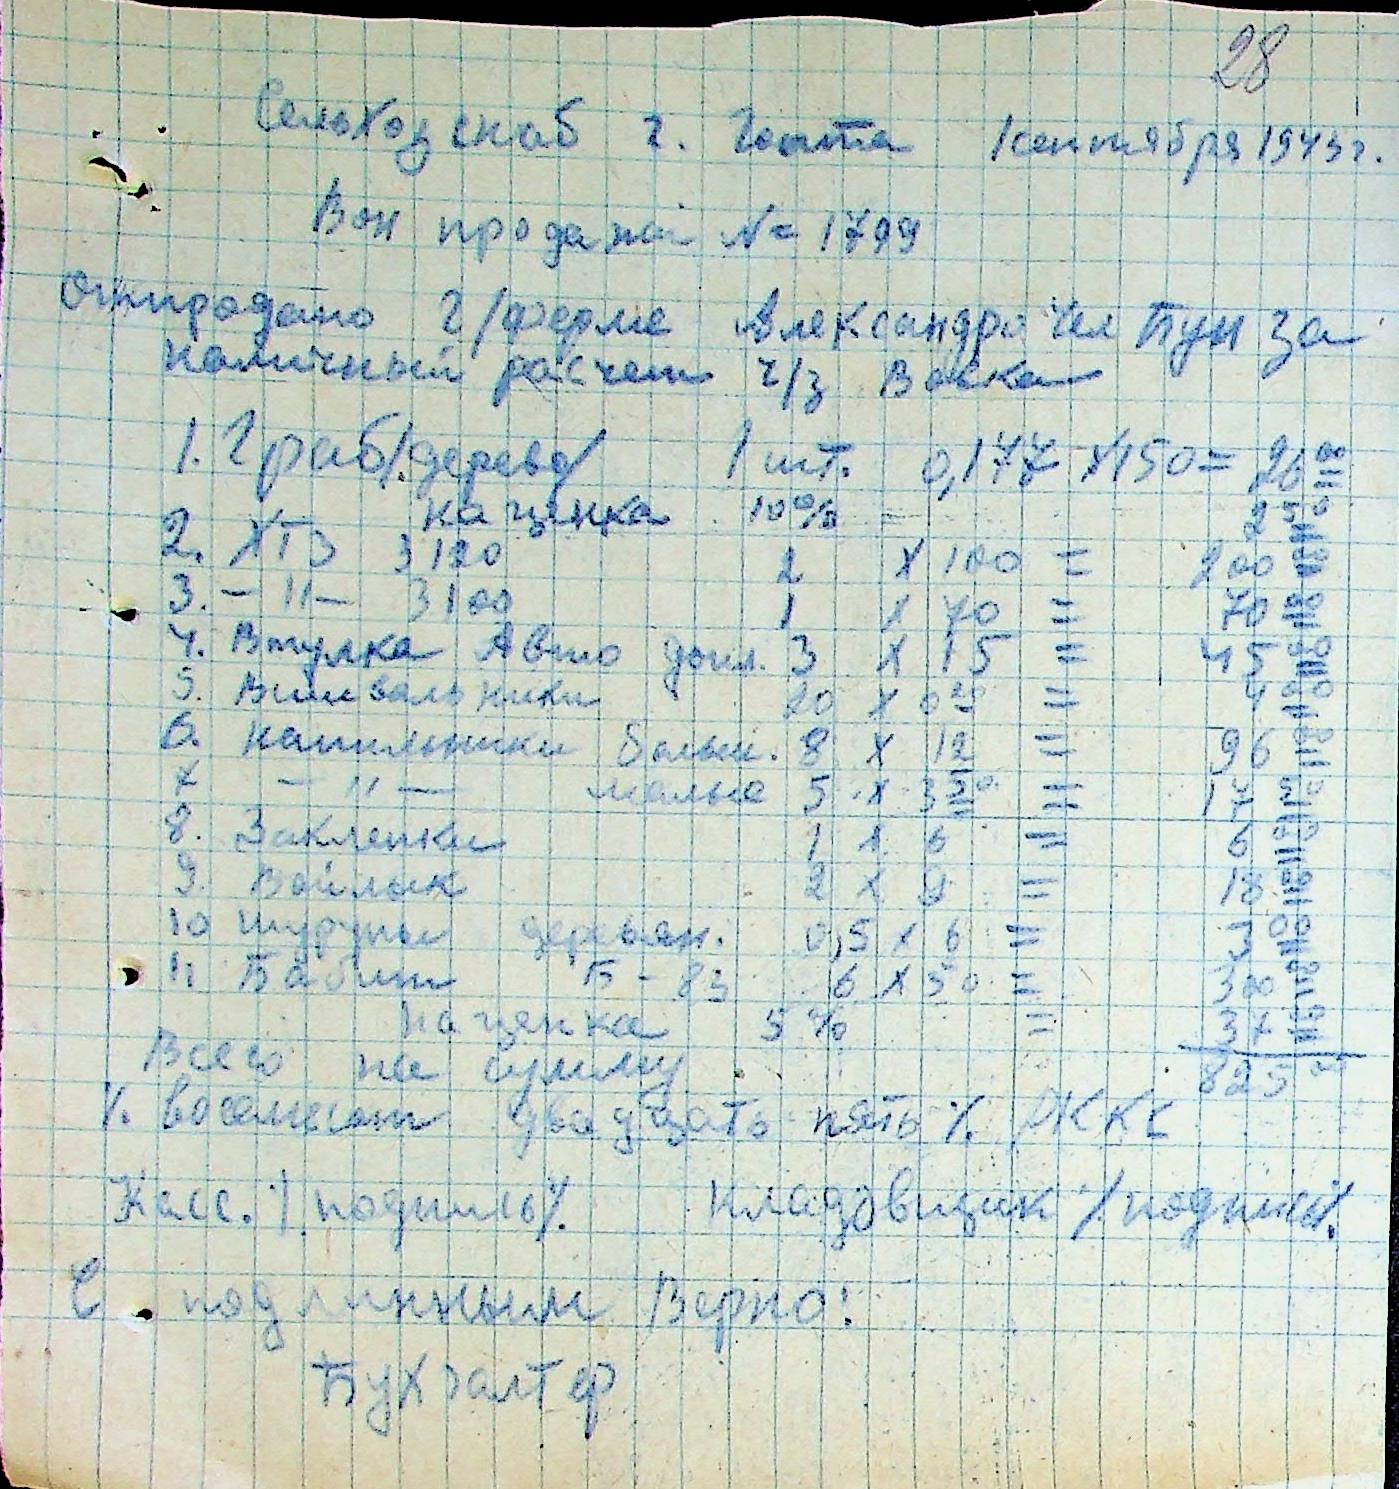 28
Сельхозснаб г. Ялта 1 сентября 1943 г.
Бон продажи № 1799
Отпродано Г/ферме Александро Чел Бун за
наличный расчет ч/з Вовка
1. Граб/дерево/ 1 шт. 0,177 х 150 = 26 00
наценка 10% 2 50
2. ХТЗ 3120 2 х 100 = 200
3. -"- 3100 1 х 70 = 70
4. Втулка Авто доил. 3 х 15 = 45
5. 20 х 0 20 = 4
6. Напильники больш. 8 х 12 = 96
7 -"- малые 5 х 3 50 = 17 50
8. Заклепки 1 х 6 = 6
9. Войлок 2 х 9 = 18
10 Шурупы деревян. 0,5 х 6 = 3
11 Бабит Б-83 6 х 50 = 300
Наценка 5% = 37
Всего на сумму 825
/. восемьсот двадцать пять /.
Касс. /.подпись/. Кладовщик /.подпись/.
С подлинным Верно:
Бухгалтер